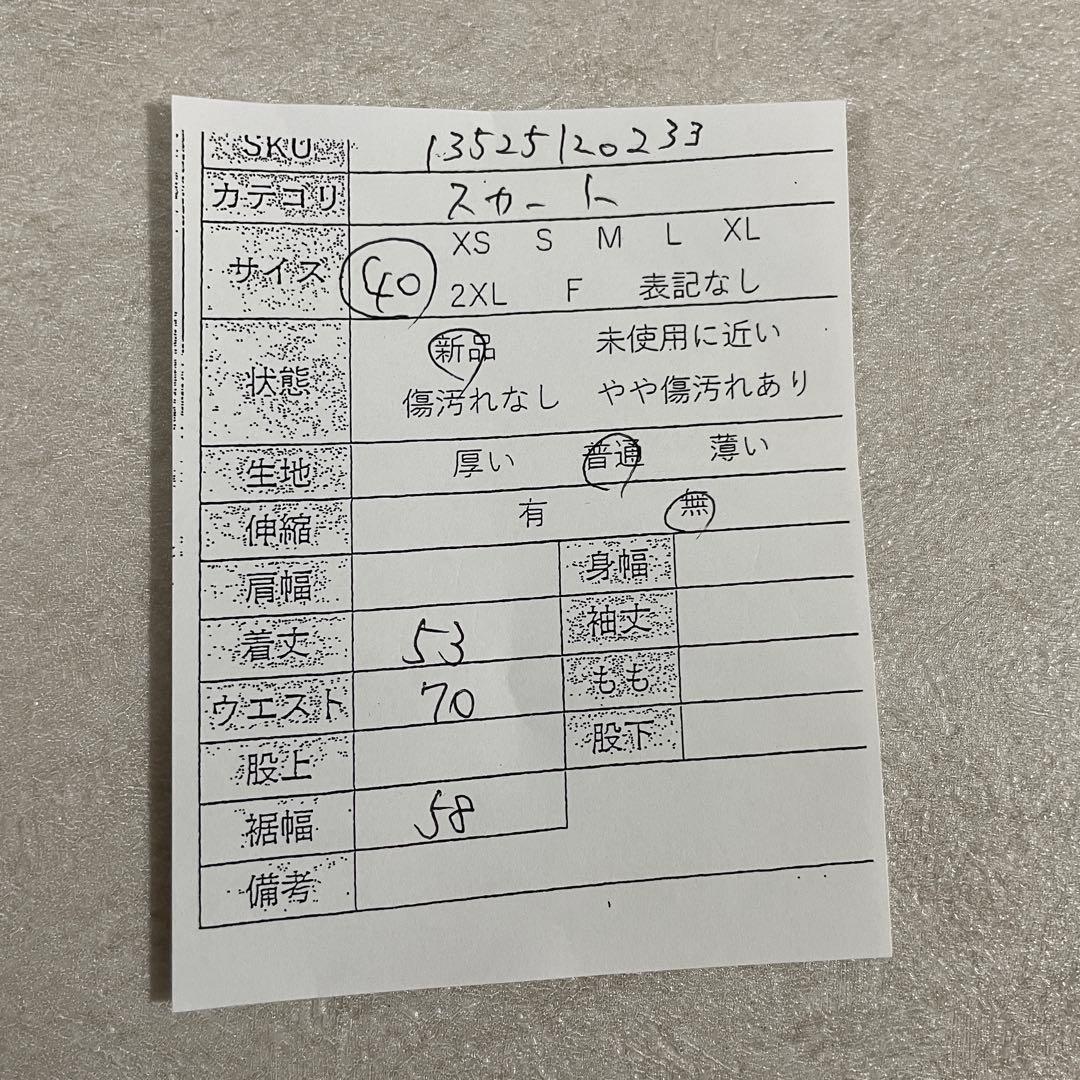 SKU 13525120233
カテゴリ スカート
サイズ 40 XS S M L XL
2XL F 表記なし
状態 新品 未使用に近い
傷汚れなし やや傷汚れあり
生地 厚い 普通 薄い
伸縮 有 無
肩幅 身幅
着丈 53 袖丈
ウエスト 70 もも
股上 股下
裾幅 58
備考